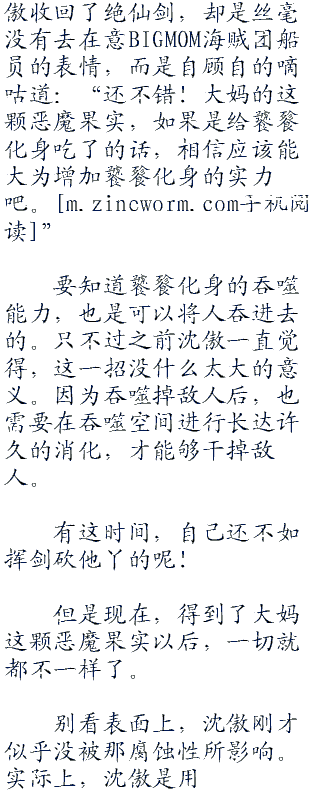 傲收回了绝仙剑，却是丝毫
没有去在意BIGMOM海贼团船
员的表情，而是自顾自的嘀
咕道：“还不错！大妈的这
颗恶魔果实，如果是给饕餮
化身吃了的话，相信应该能
大为增加饕餮化身的实力
吧。[m.zincworm.com手机阅
读]”
要知道饕餮化身的吞噬
能力，也是可以将人吞进去
的。只不过之前沈傲一直觉
得，这一招没什么太大的意
义。因为吞噬掉敌人后，也
需要在吞噬空间进行长达许
久的消化，才能够干掉敌
人。
有这时间，自己还不如
挥剑砍他丫的呢！
但是现在，得到了大妈
这颗恶魔果实以后，一切就
都不一样了。
别看表面上，沈傲刚才
似乎没被那腐蚀性所影响。
实际上，沈傲是用